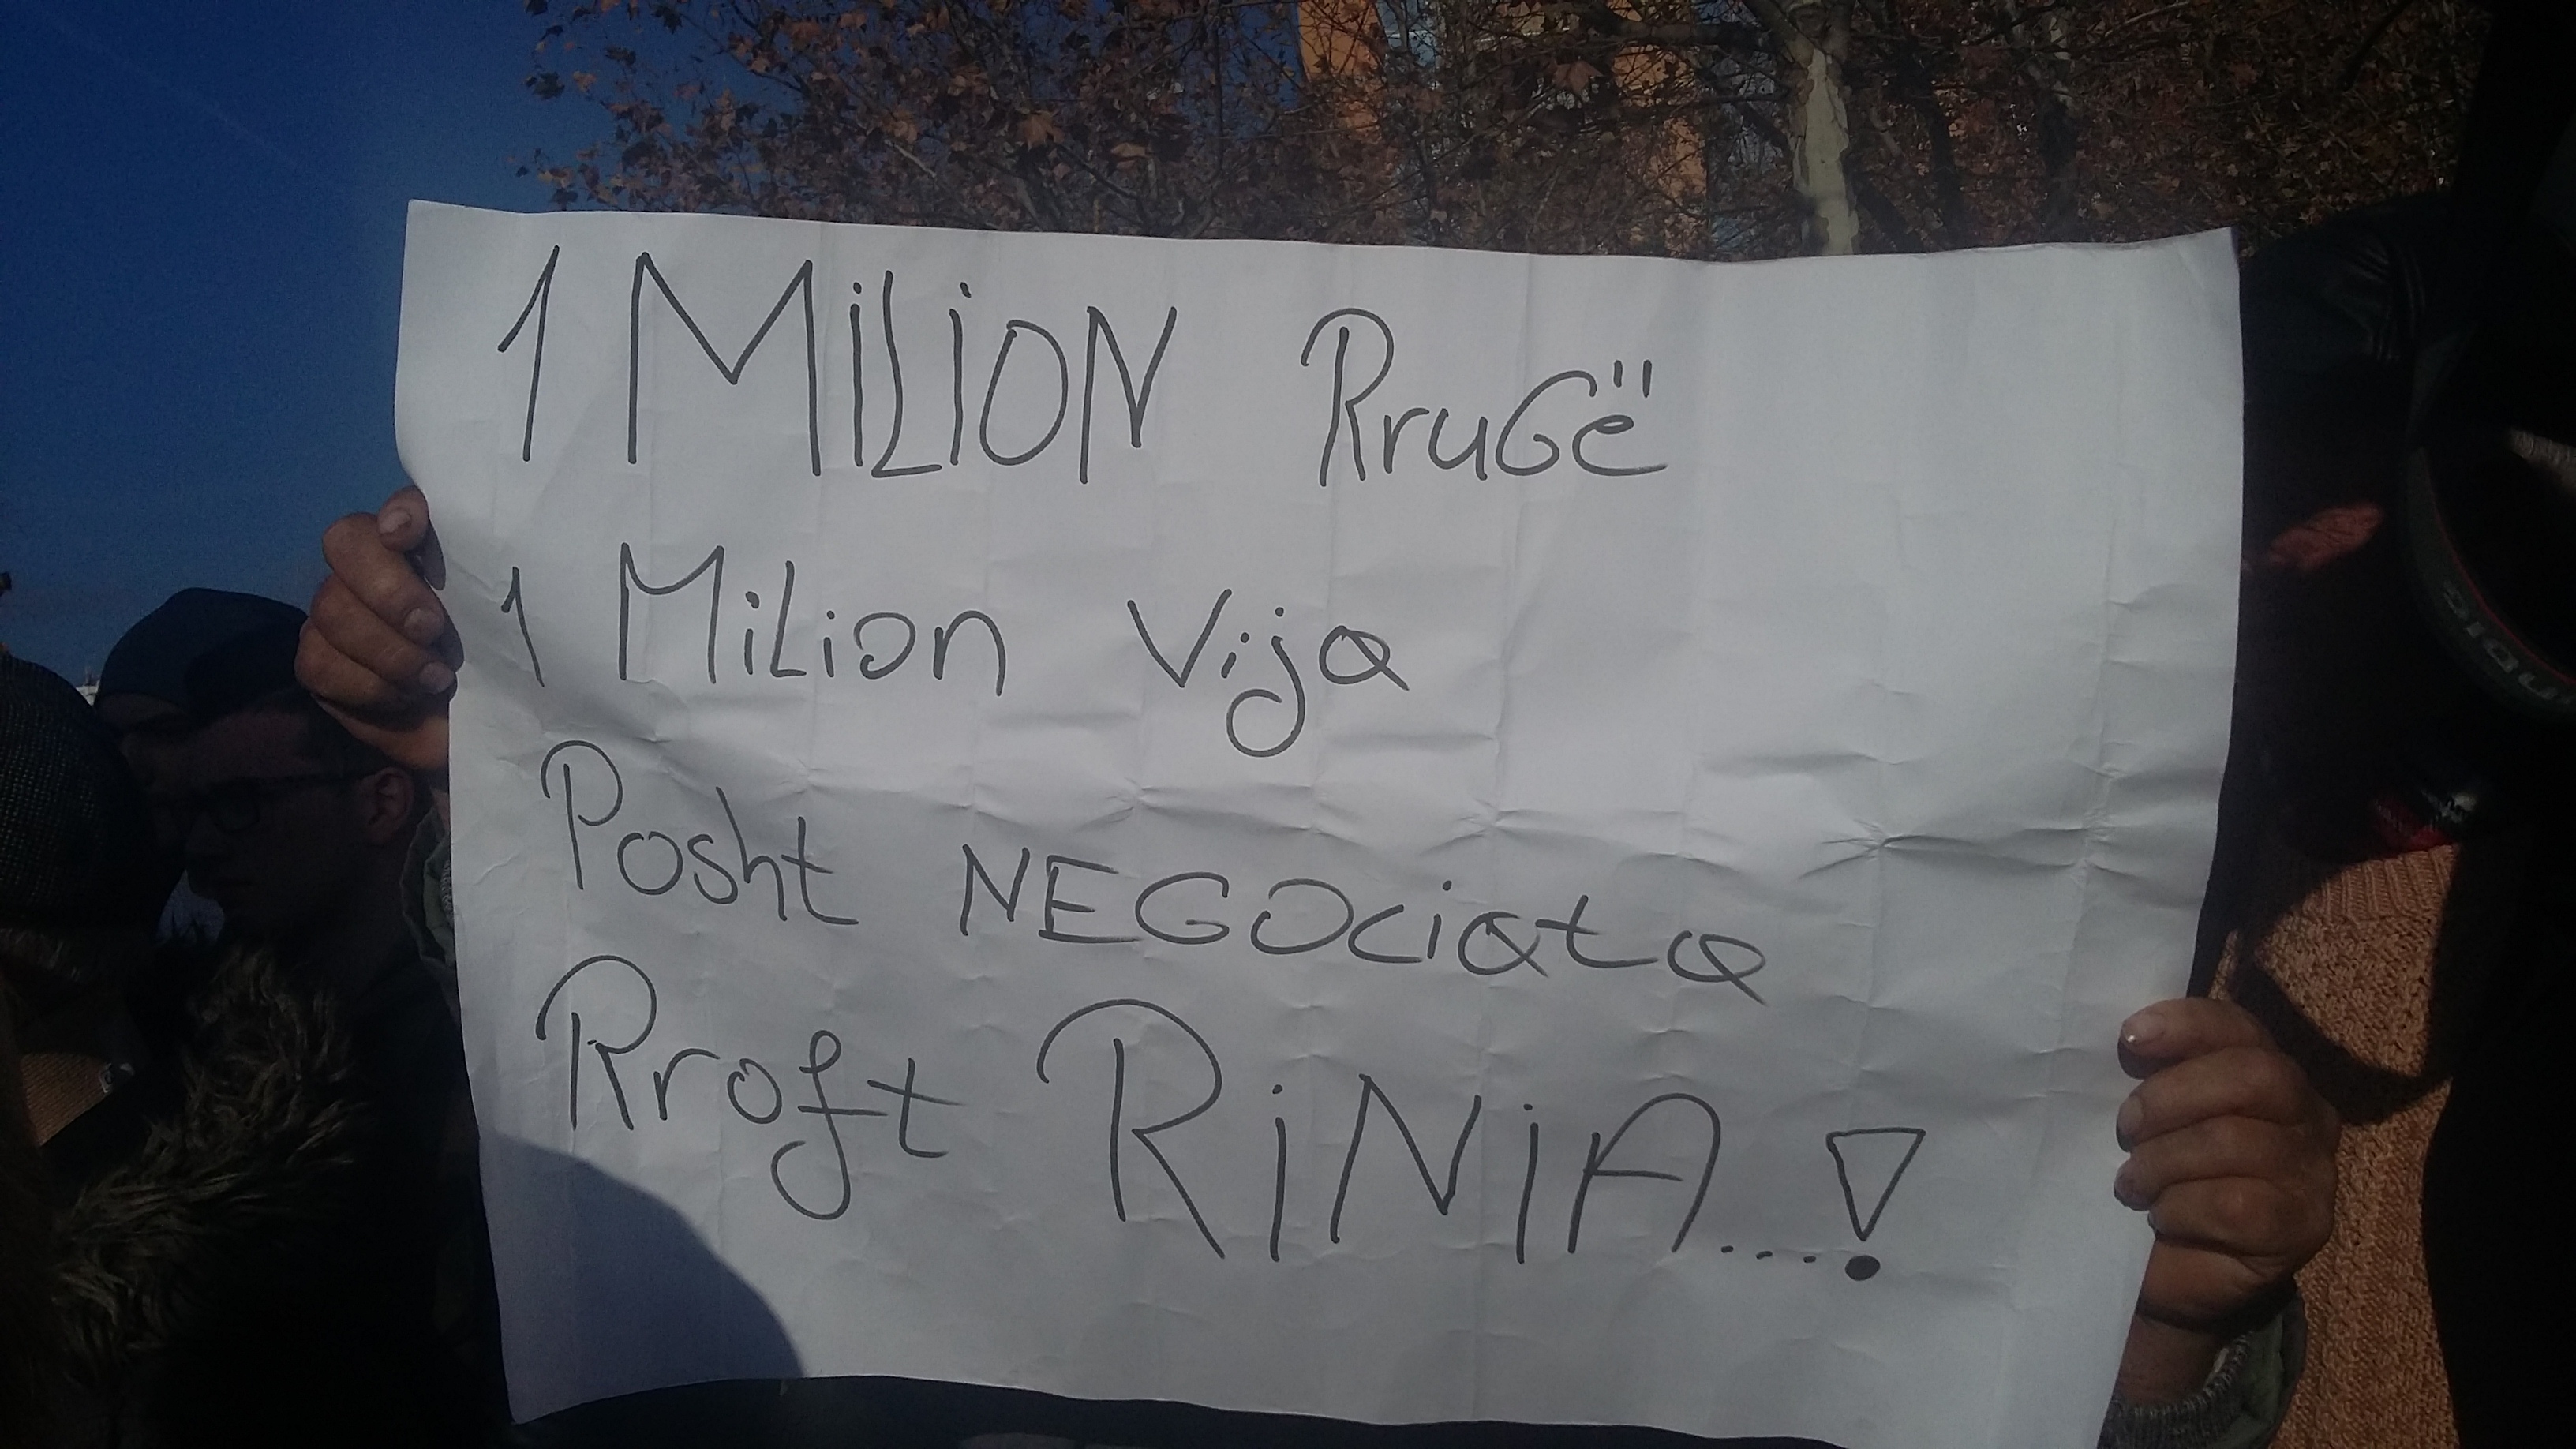 1 MiLiON RruGë
1 MiLion Vija
Posht NEGOciata
Rroft RiNiA....!